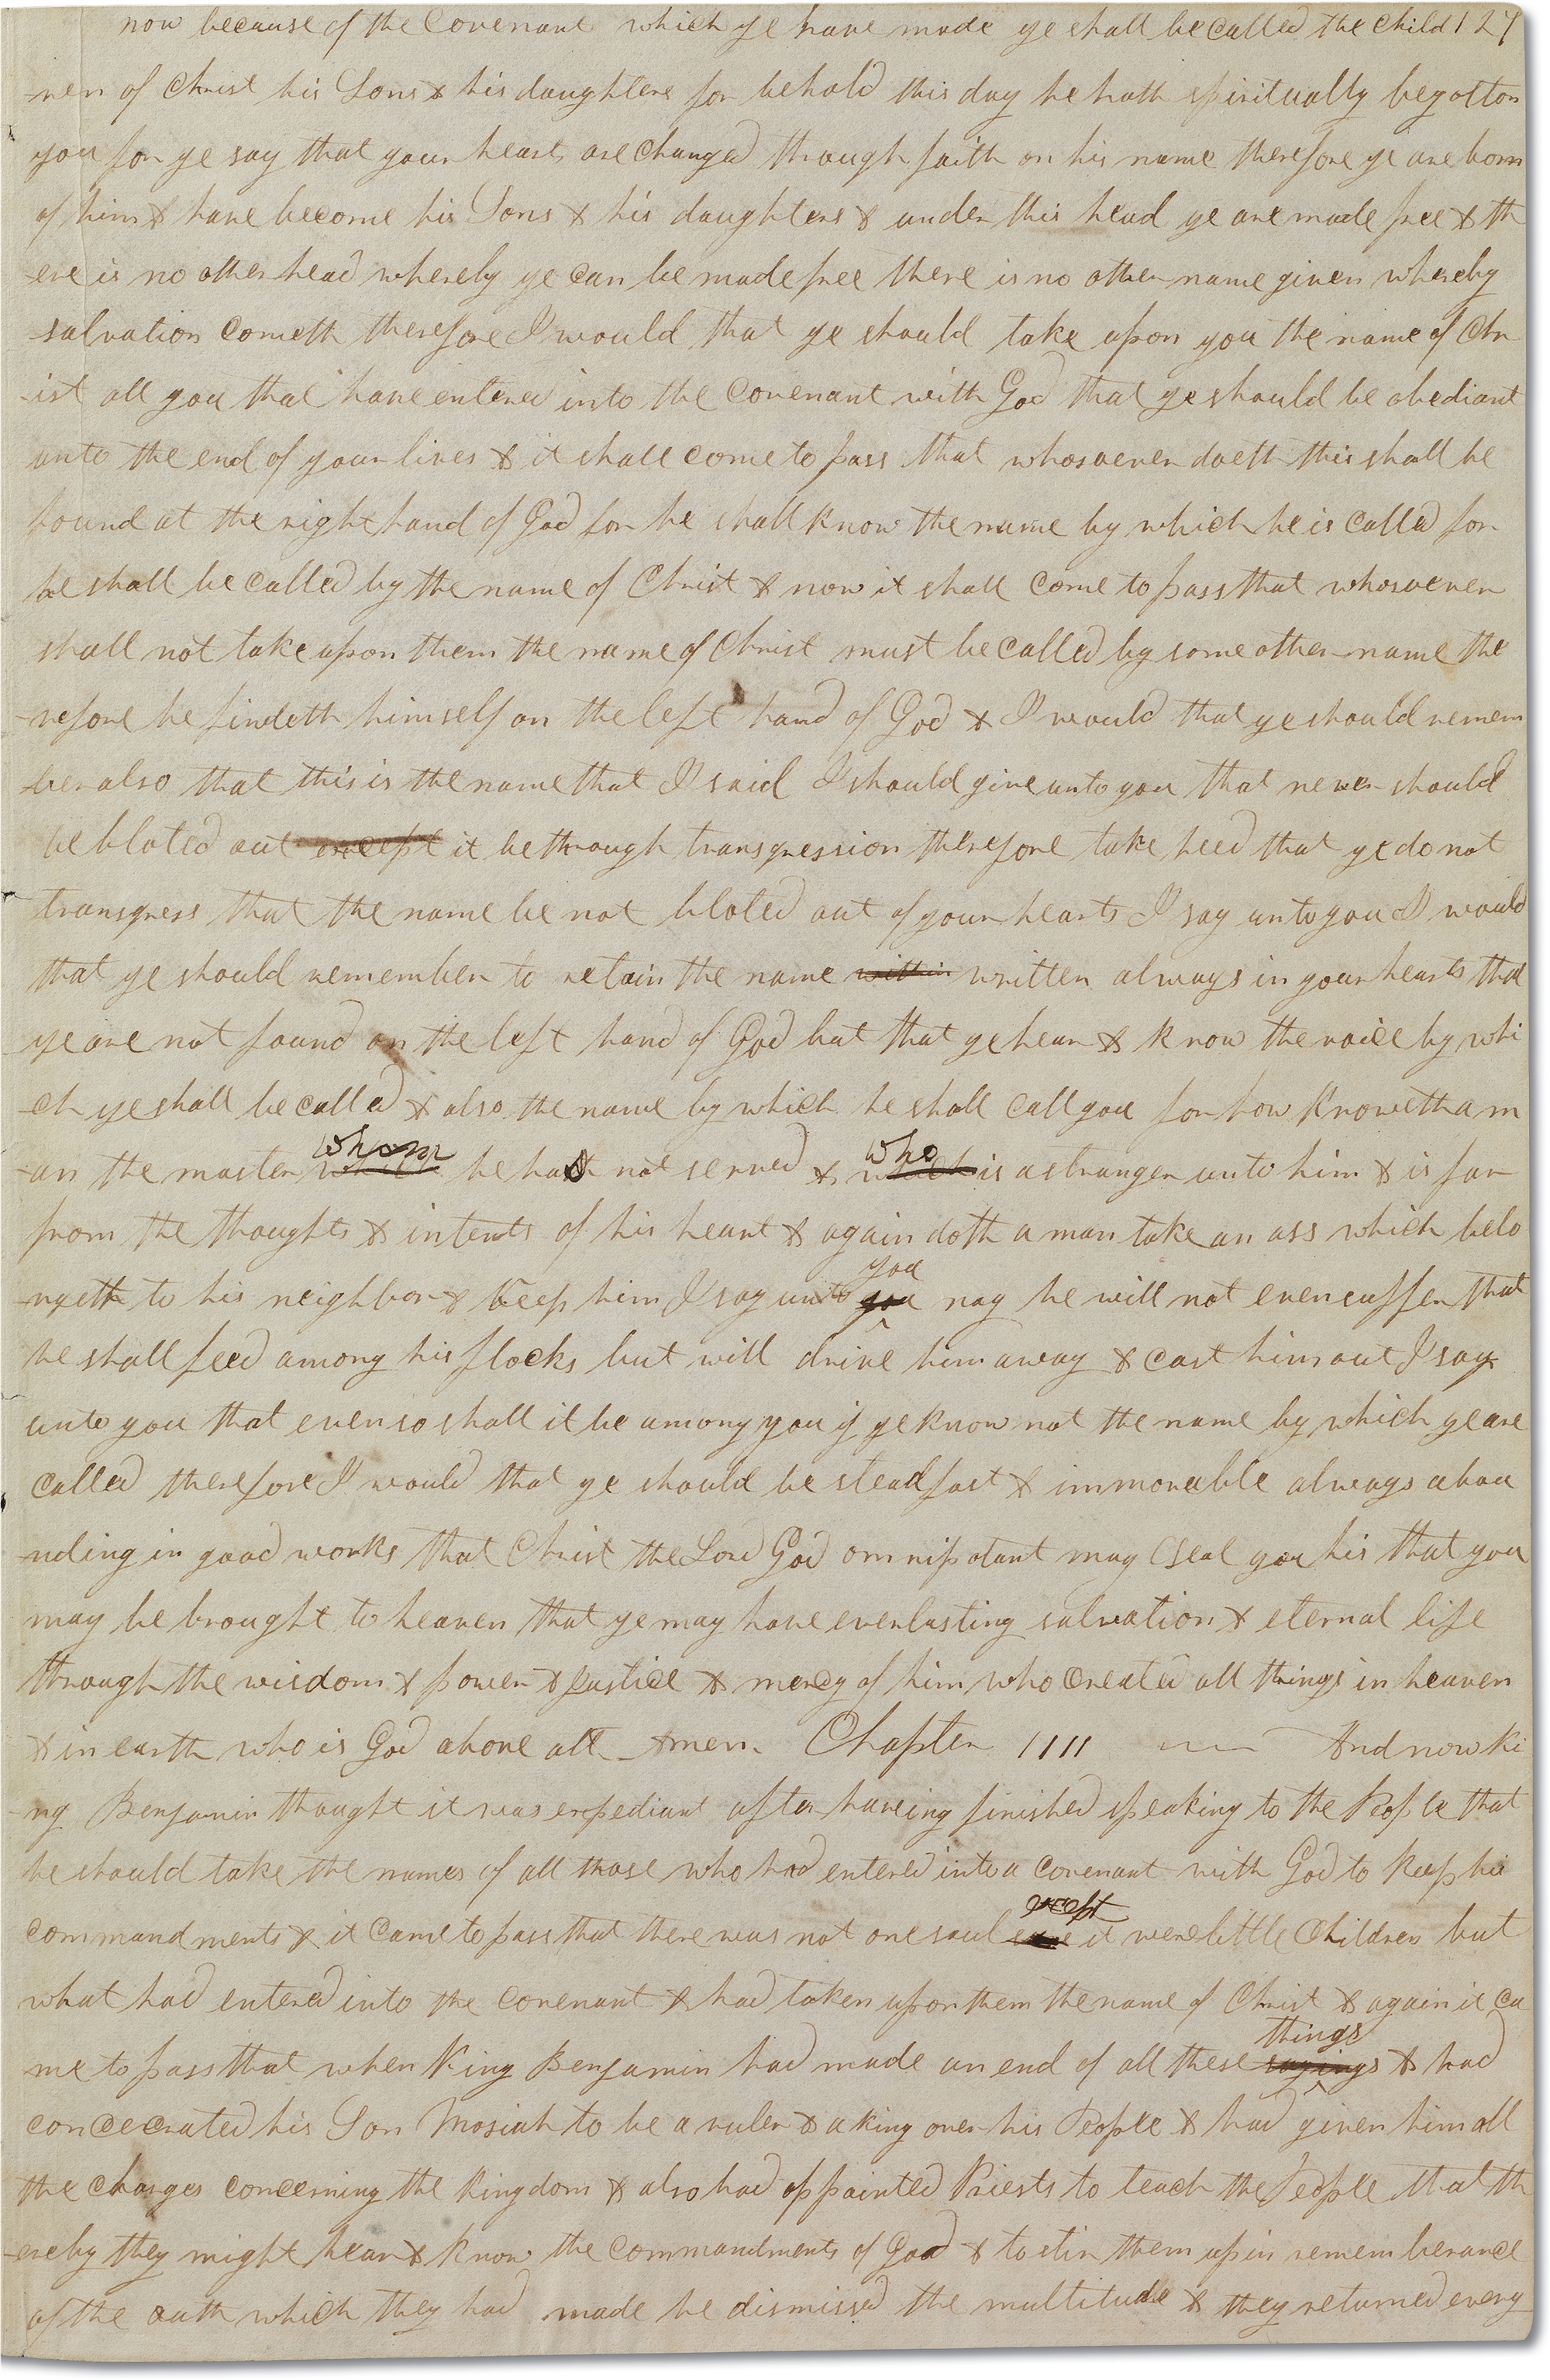 now because of the Covenant which ye have made ye shall be called the child 127
-ren of Christ his Sons & his daughters for behold this day he hath spiritually begotton
you for ye say that your hearts are changed through faith on his name therefore ye are born
of him & have become his Sons & his daughters & under this head ye are made free & th
-ere is no other head whereby ye can be made free there is no other name given whereby
salvation cometh therefore I would that ye should take upon you the name of Chr
-ist all you that have entered into the Covenant with God that ye should be obediant
unto the end of your lives & it shall come to pass that whosoever doeth this shall be
found at the right hand of God for he shall know the name by which he is called for
he shall be called by the name of Christ & now it shall come to pass that whosoever
shall not take upon them the name of Christ must be called by some other name the
-refore he findeth himself on the left hand of God & I would that ye should remem
-ber also that this is the name that I said I should give unto you that never should
be bloted out except it be through transgression therefore take heed that ye do not
transgress that the name be not bloted out of your hearts I say unto you I would
that ye should remember to retain the name within written always in your hearts that
ye are not found on the left hand of God but that ye hear & know the voice by whi
-ch ye shall be called & also the name by which he shall call you for how knoweth a m
whom who
-an the master which he has not served & which is a stranger unto him & is far
from the thoughts & intents of his heart & again doth a man take an ass which belo
you
-ngeth to his neighbor & keep him I say unto you nay he will not even suffer that
he shall feed among his flocks but will drive him away & cast him out I say
unto you that even so shall it be among you if ye know not the name by which ye are
called therefore I would that ye should be steadfast & immoveable always abou
-nding in good works that Christ the Lord God omnipotant may seal you his that you
may be brought to heaven that ye may have everlasting salvation & eternal life
through the wisdom & power & justice & mercy of him who created all things in heaven
& in earth who is God above all Amen. Chapter 1111 And now ki
-ng Benjamin thought it was expediant after haveing finished speaking to the People that
he should take the names of all those who had entered into a covenant with God to keep his
except
commandments & it came to pass that there was not one soul save it were little Children but
what had entered into the covenant & had taken upon them the name of Christ & again it ca
things
-me to pass that when King Benjamin had made an end of all these sayings & had
concecrated his Son Mosiah to be a ruler & a king over his People & had given him all
the charges concerning the kingdom & also had appointed Priests to teach the People that th
-ereby they might hear & know the commandments of God & to stir them up in rememberance
of the oath which they had made he dismissed the multitude & they returned every